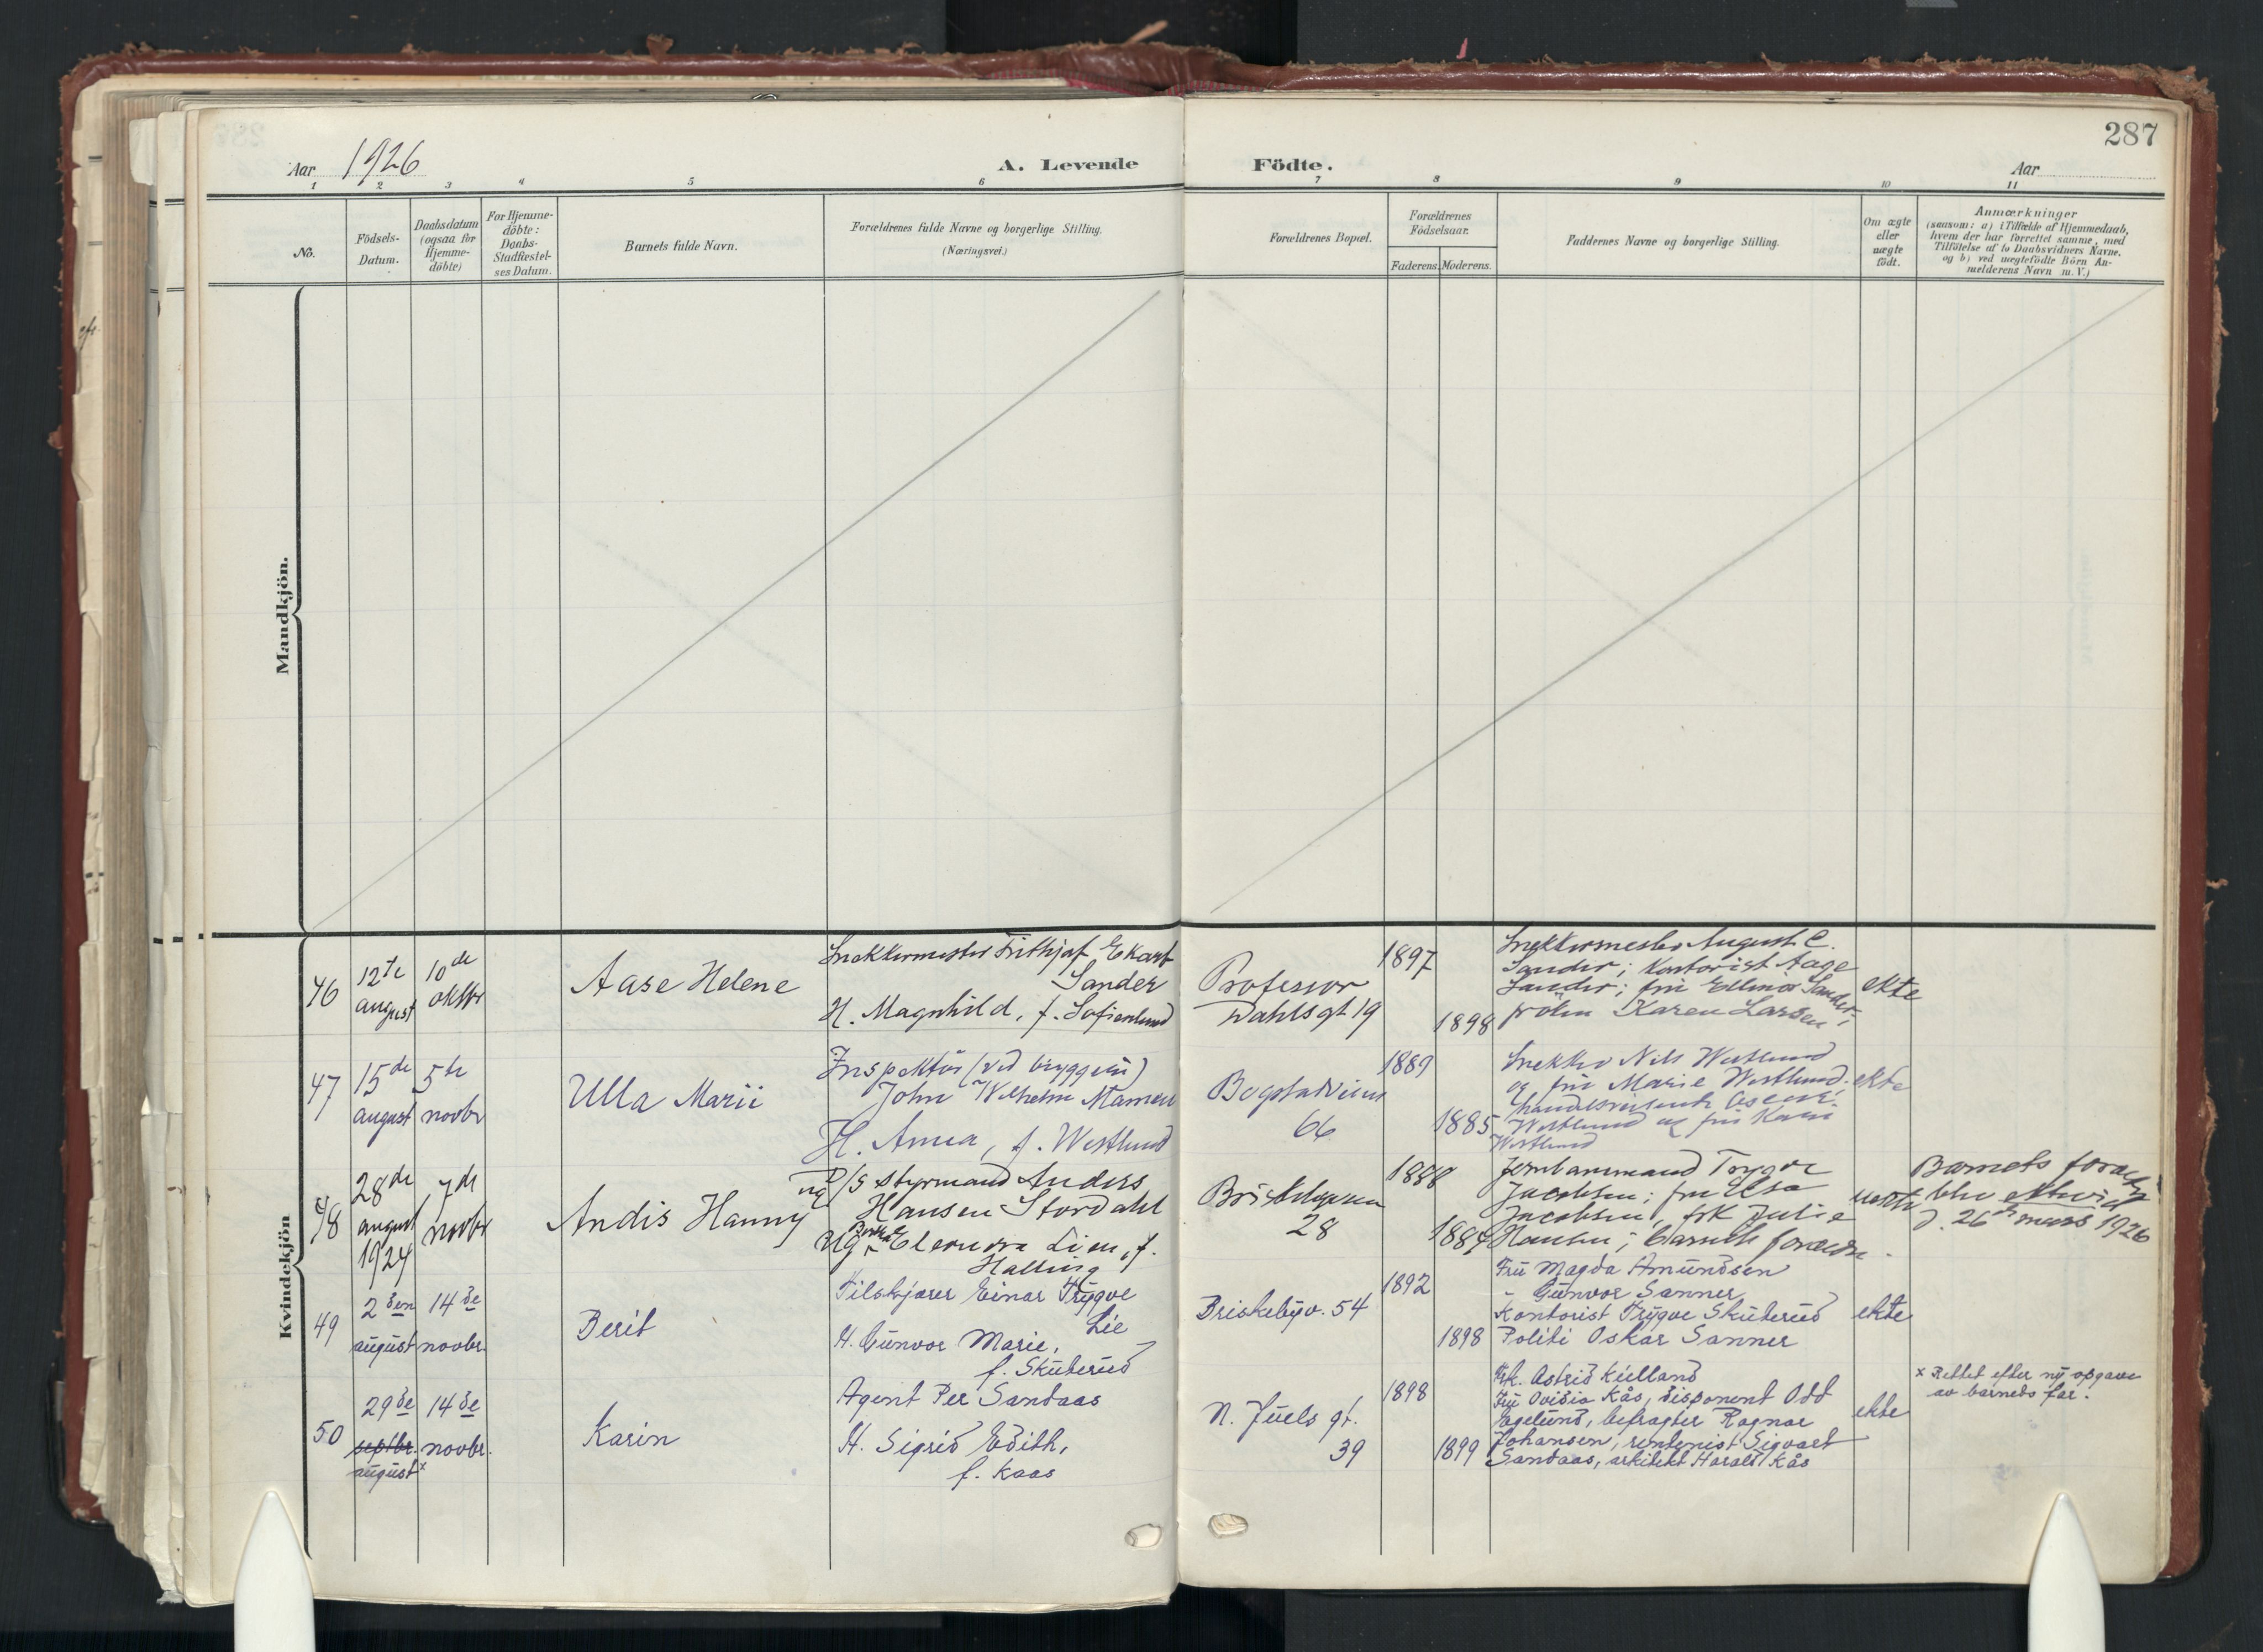 287
Aar 1926
A. Levende Födte.
Aar
1 2 3 4 5 6 7 8 9 10 11
No.
Födsels-
Datum.
Daabsdatum
(ogsaa for
Hjemme-
döbte)
For Hjemme-
döbte:
Daabs-
Stadfæstel-
ses Datum.
Barnets fulde Navn.
Forældrenes fulde Navne og borgerlige Stilling.
(Næringsvei.)
Forældrenes Bopæl.
Forældrenes
Födselsaar.
Faderens. Moderens.
Faddernes Navne og borgerlige Stilling.
Om ægte
eller
uægte
födt.
Anmærkninger
(saasom: a) i Tilfælde af Hjemmedaab,
hvem der har forrettet samme, med
Tilföielse af to Daabsvidners Navne,
og b) ved uægtefödte Börn An-
melderens Navn m. V.)
Mandkjön.
Kvindekjön
46
12te
august
10de
oktbr
Aase Helene
Snekkermester Frithjof Ekart
Sander
H. Magnhild, f. Sofienlund
Professor
Dahlsgt 19
1897
1898
Snekkermester August C.
Sander; Kontorist Aage
Sander; fru Ellinor Sander;
frøken Karen Larsen
ekte
47
15de
august
5te
novbr
Ulla Marie
Inspektør (ved bryggeri)
John Wilhelm Mamen
H. Anna, f. Westlund
Bogstadveien
66
1889
1885
Snekker Nils Westlund
og fru Marie Westlund.
Westlund og fru Karin
Westlund
ekte
48
28de
august
1924
7de
novbr
Andis Hanny
D/S styrmand Anders
Hansen Stordahl
Eleonora Lien, f.
Halling
Briskebyveien
28
1888
1884
Jernbanemand Trygve
Jacobsen; fru Elsa
Jacobsen, frk Julie
Hansen; barnets foreldre.
uekte
Barnets foreldre
blev ektevied
d. 26de mars 1926
49
2den
august
14de
novbr.
Berit
Filskjærer Einar Trygve
Lie
H. Gunvor Marie,
f. Skuterud
Briskebyv. 54
1892
1898
Fru Magda Amundsen
" Gunvor Sanner
Kontorist Trygve Skuterud
Politi Oskar Sanner
ekte
50
29de
septbr.
august x
14de
novbr.
Karin
Agent Per Sandaas
H. Sigrid Edith,
f. Kaas
N. Juels gt.
39
1898
1899
Frk. Astrid Kielland
Fru Ovidia Kås, disponent Odd
Fagelund, befragter Ragnar
Johansen, rentenist Sigvart
Sandaas, arkitekt Harald Kås
ekte
x Rettet efter ny opgave
av barnets far.